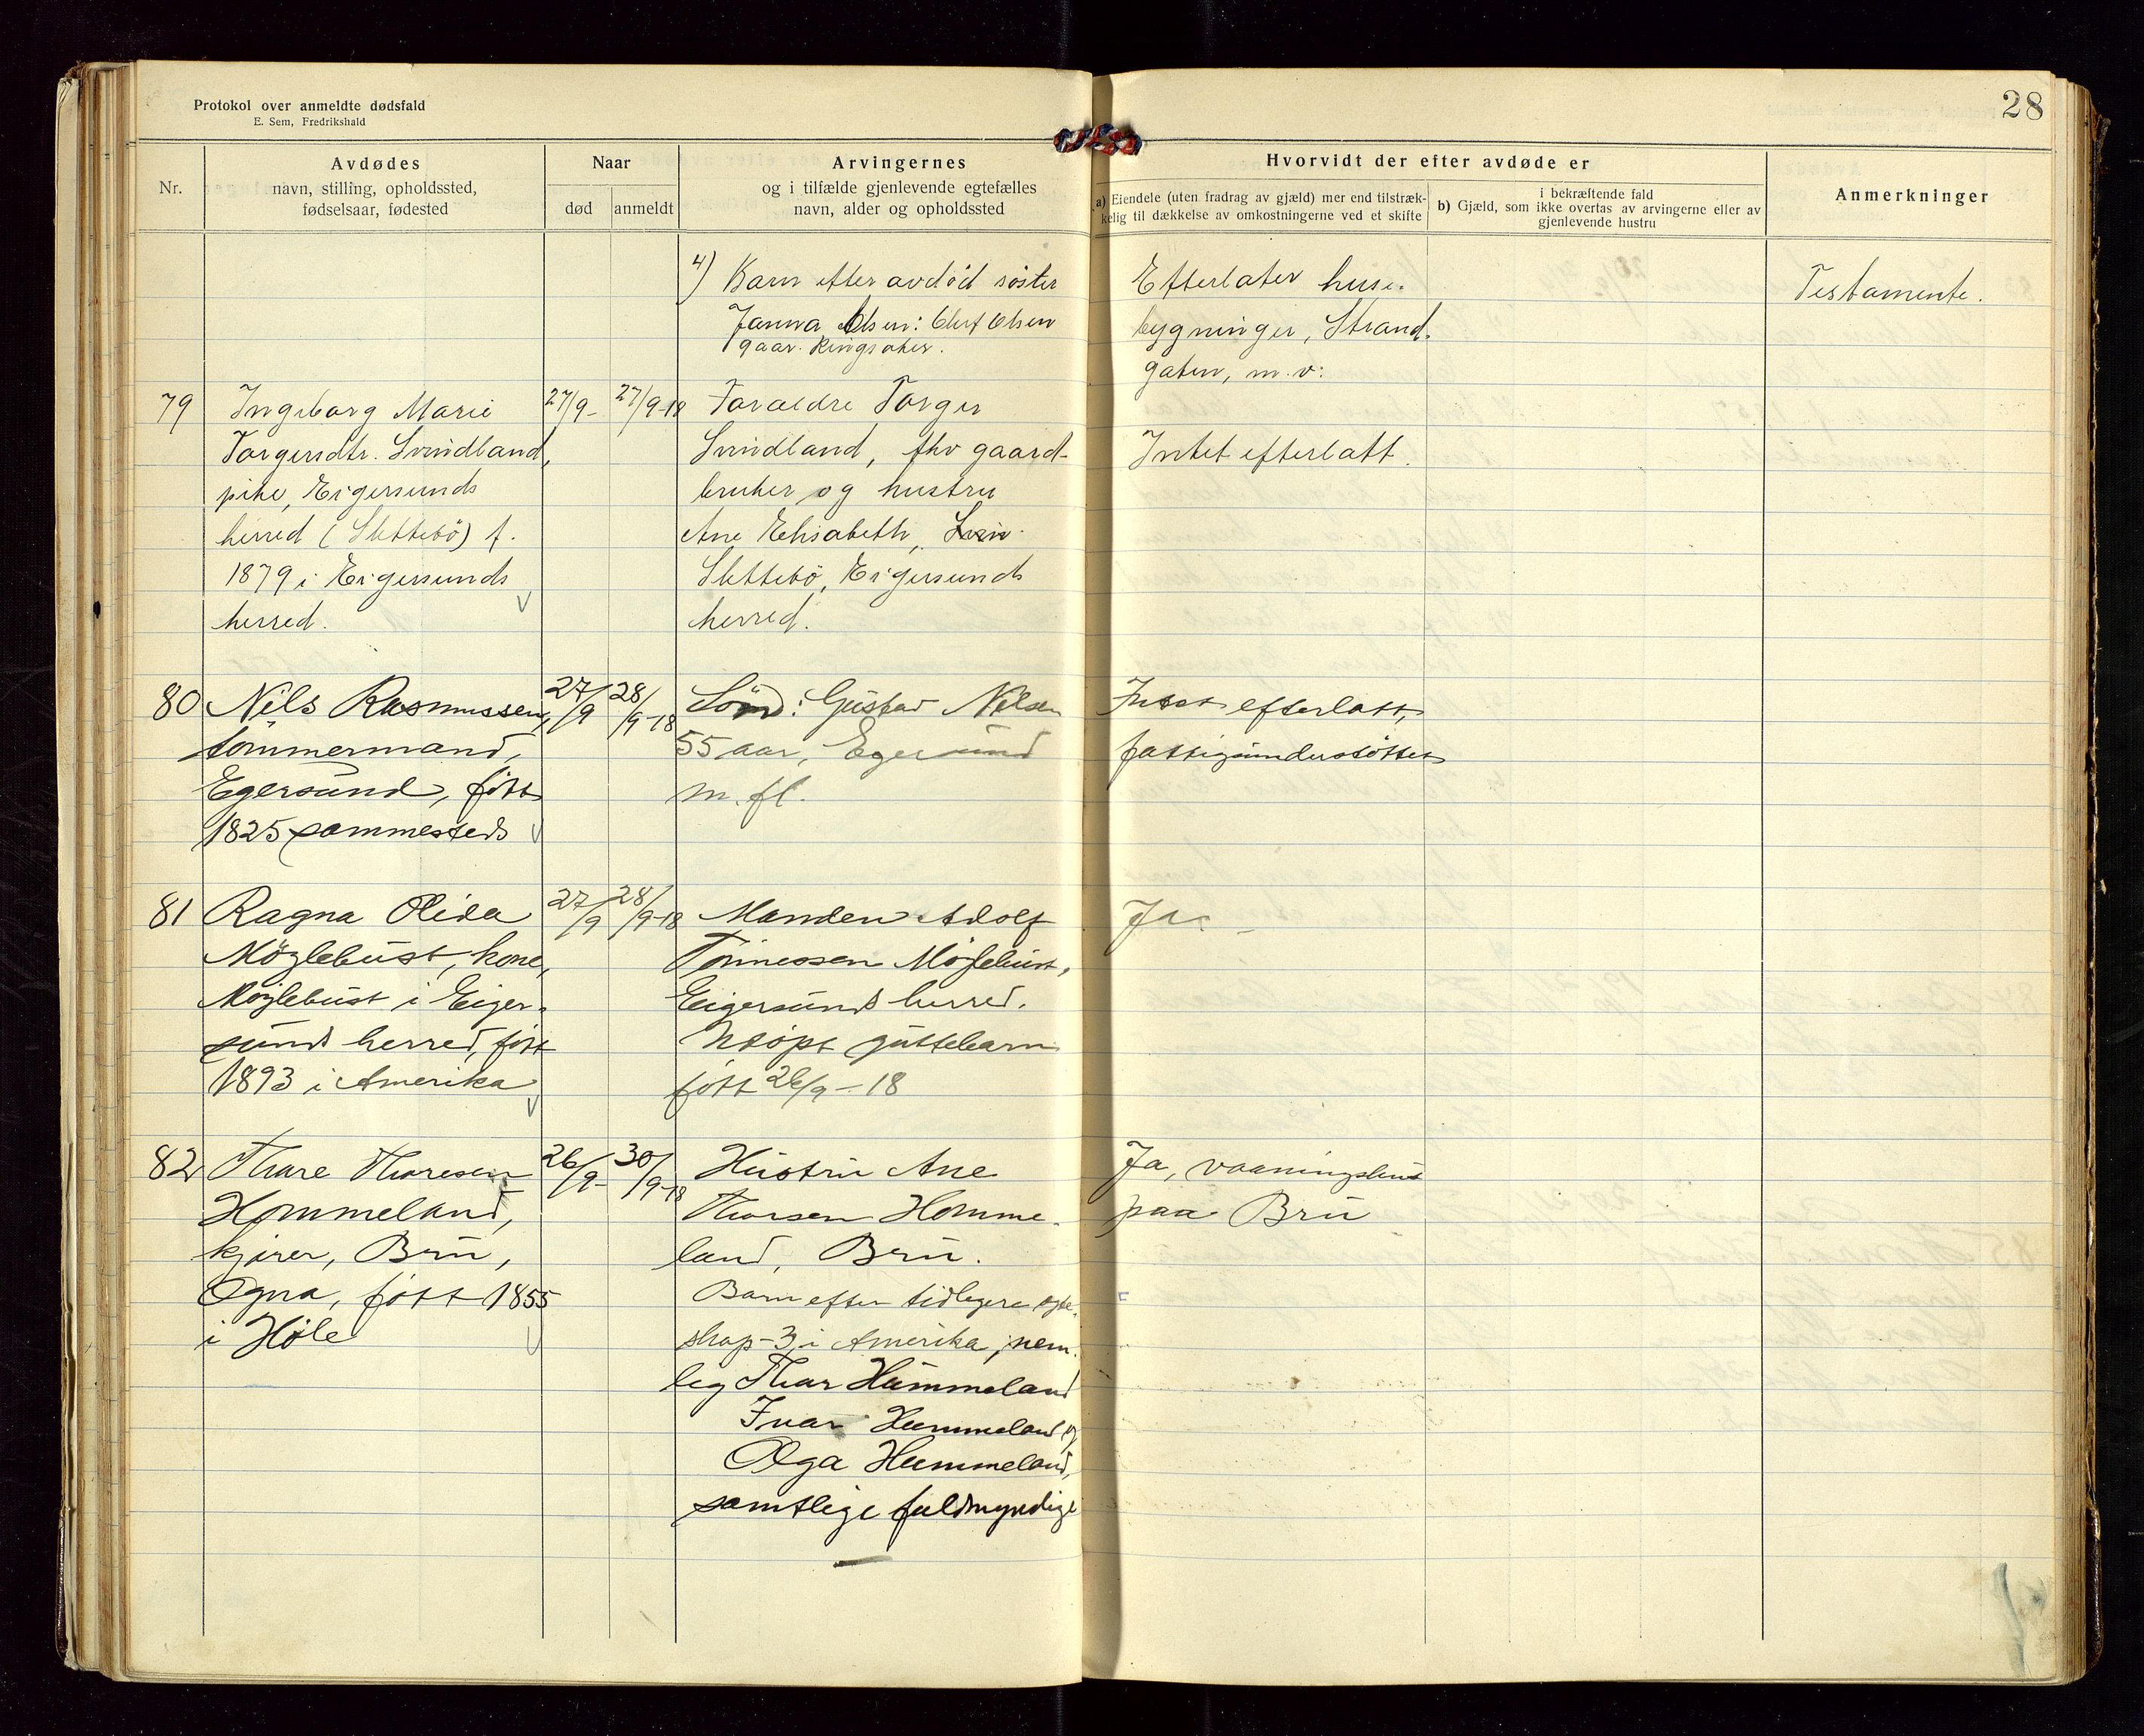 Protokol over anmeldte dødsfald
E. Sem, Fredrikshald
28
Nr.
Avdødes
navn, stilling, opholdssted,
fødselsaar, fødested
Naar
død
anmeldt
Arvingernes
og i tilfælde gjenlevende egtefælles
navn, alder og opholdssted
Hvorvidt der efter avdøde er
a) Eiendele (uten fradrag av gjæld) mer end tilstræk-
kelig til dækkelse av omkostningerne ved et skifte
i bekræftende fald
b) Gjæld, som ikke overtas av arvingerne eller av
gjenlevende hustru
Anmerkninger
4) Barn efter avdöd söster
Janna Olsen: Oluf Olsen
gaar. Ringsaker.
Efterlater huse.
bygninger, Strand.
gaten, m.v:
Testamente.
79
Ingeborg Marie
Torgersdtr. Svindland,
pike, Eigersunds
herred (Slettebö) f.
1879 i Eigersunds
herred.
27/9-
27/9-18
Foraeldre Torger
Svindland, fhv gaard-
bruker og hustru
Ane Elisabeth,
Slettebö, Eigersunds
herred.
Intet efterlatt.
80
Nils Rasmussen,
tömmermand,
Egersund, fött
1825 sammesteds
27/9
28/9-18
Sön: Gustav Nilsen
55 aar, Egersund
m. fl.
Intet efterlatt,
fattigunderstöttet
81
Ragna Olida
Möglebust, kone,
Möglebust i Eiger-
sunds herred, fött
1893 i Amerika
27/9
28/9-18
Manden Adolf
Tönnessen Möglebust,
Eigersunds herred.
Udöpt guttebarn
fött 26/9-18
Ja -
82
Thore Thoresen
Hommeland,
kjörer, Bru,
Ogna, fött 1855
i Höle
26/9-
30/9-18
Hustru Ane
Thorsen Homme-
land, Bru.
Barn efter tidligere egte-
skap-3 i Amerika, nem-
lig Thor Hummeland
Ivar Hummeland og
Olga Hummeland,
samtlige fuldmyndige
Ja, vaaningshus
paa Bru